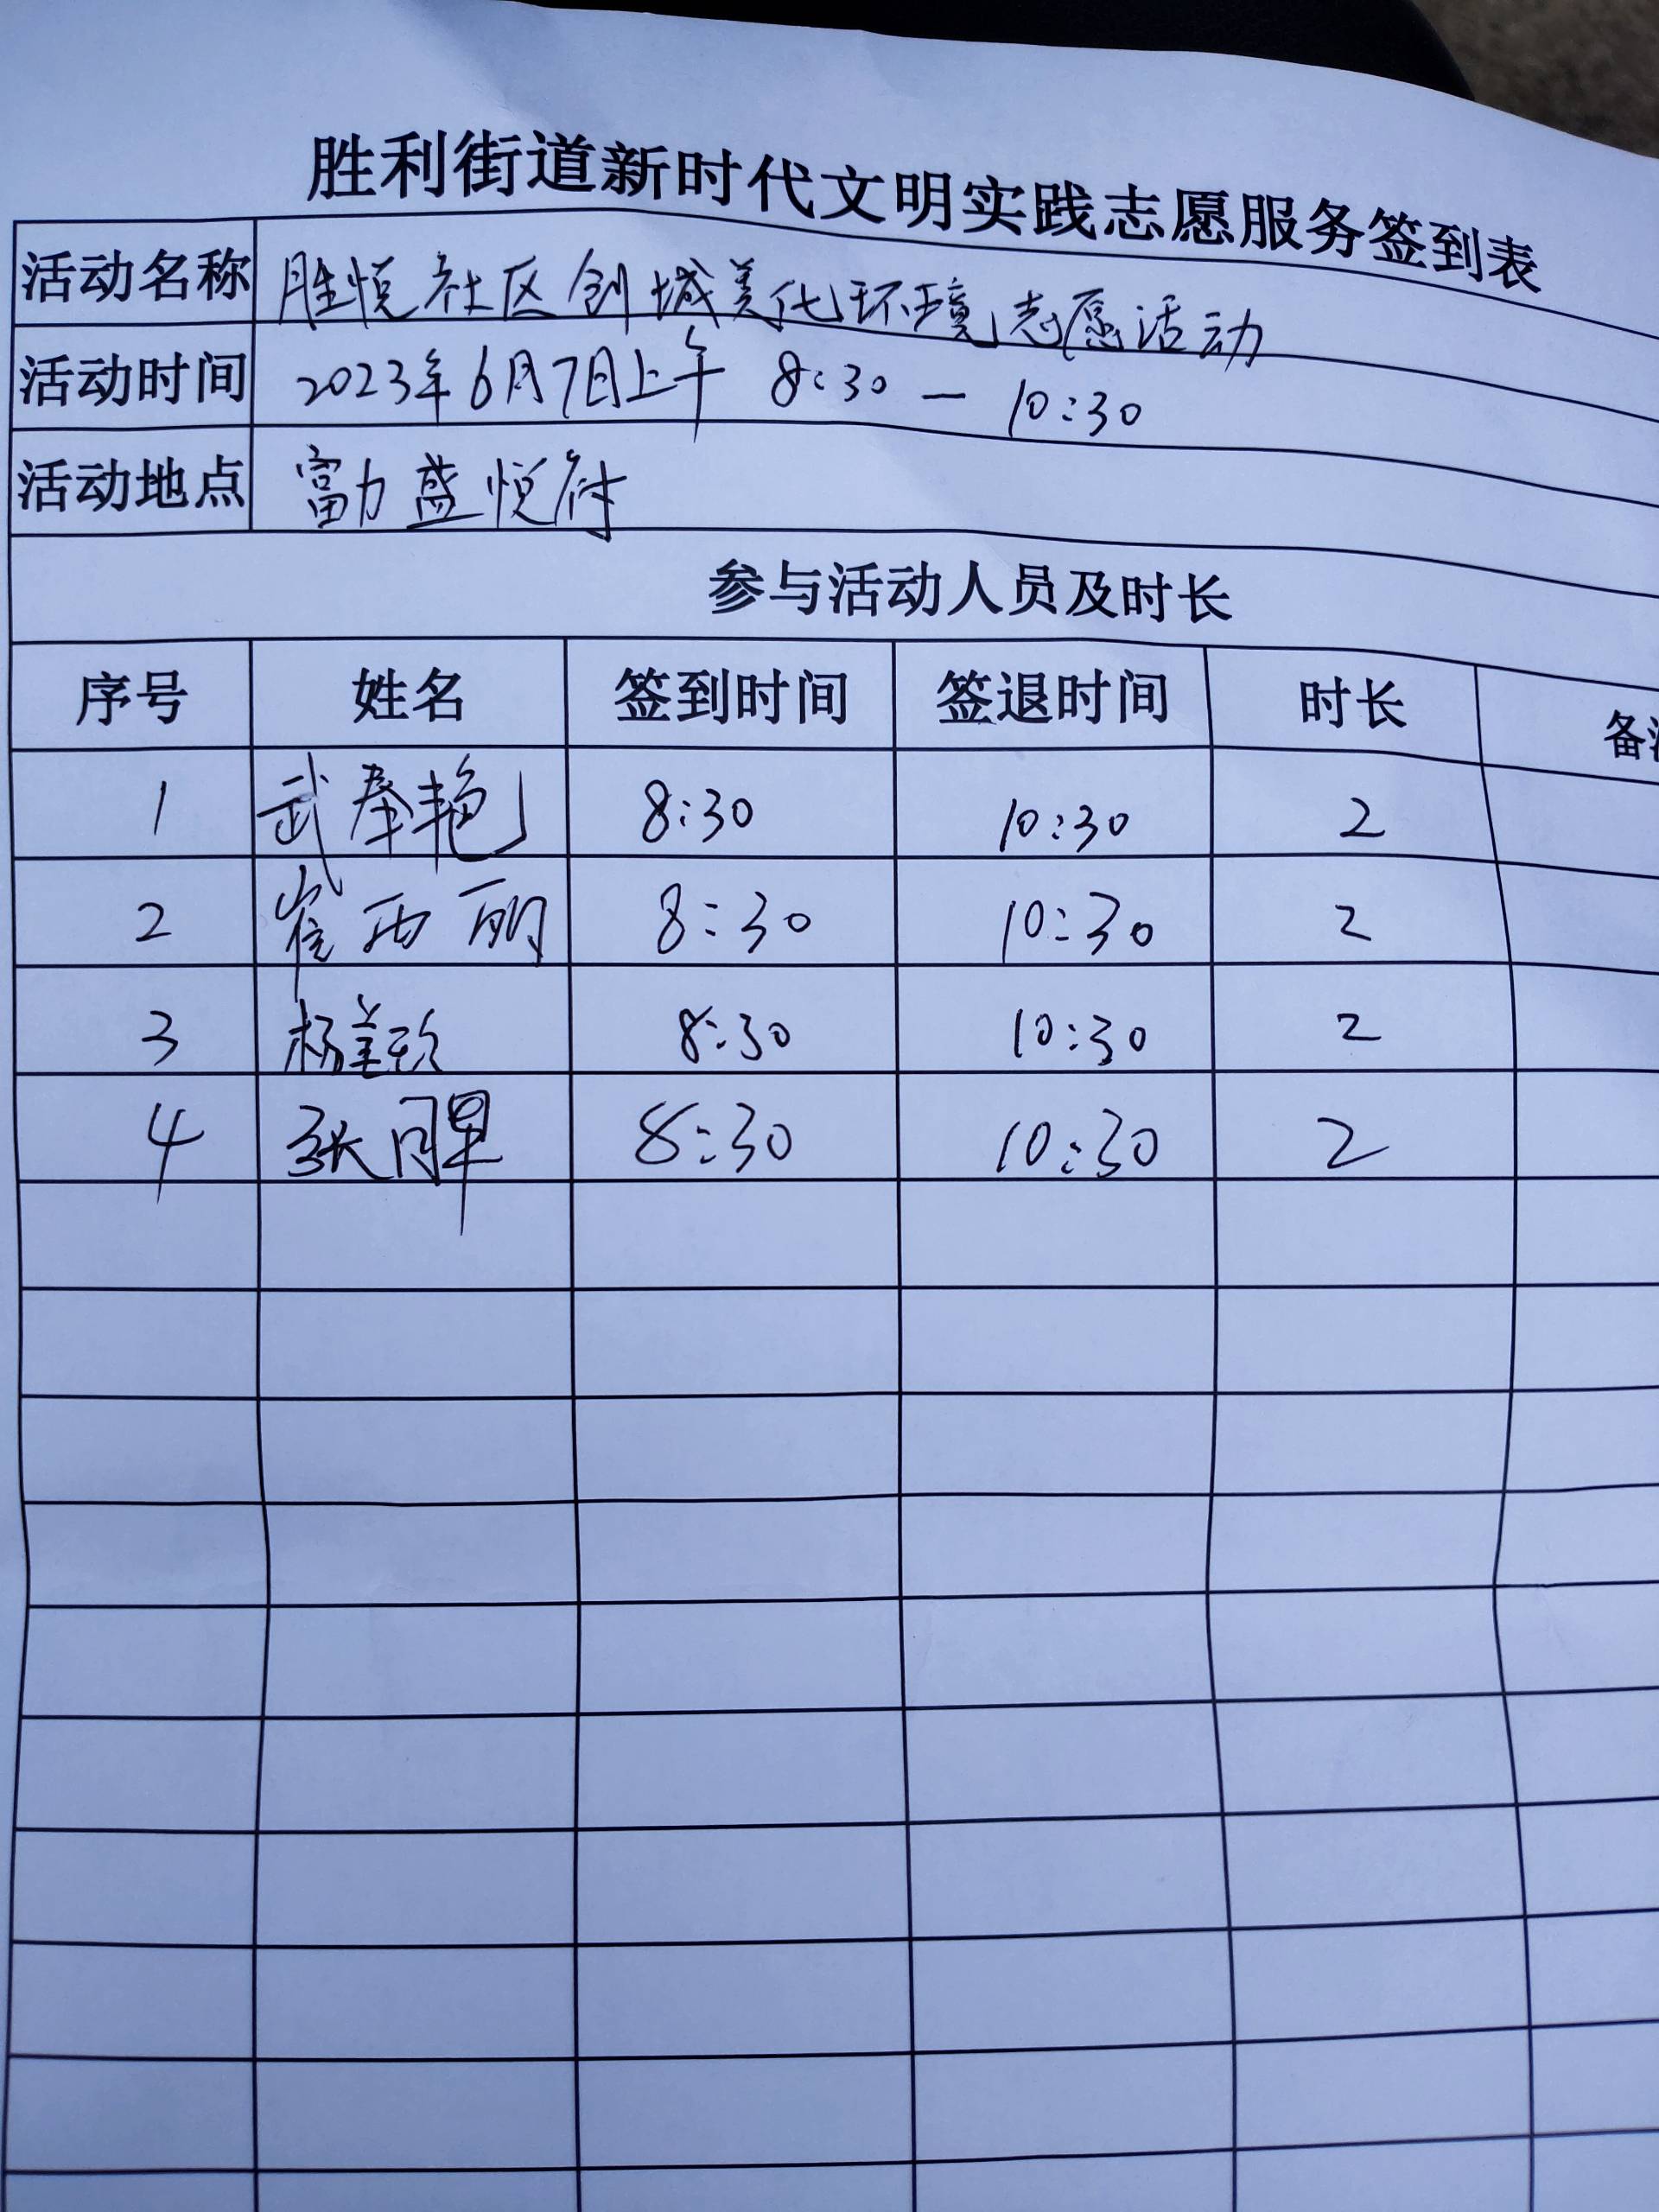 胜利街道新时代文明实践志愿服务签到表
活动名称 胜悦社区创城美化环境志愿活动
活动时间 2023年6月7日上午 8:30 — 10:30
活动地点 富力盛悦府
参与活动人员及时长
序号 姓名 签到时间 签退时间 时长 备
1 武春艳 8:30 10:30 2
2 崔西丽 8:30 10:30 2
3 杨美玲 8:30 10:30 2
4 张 8:30 10:30 2